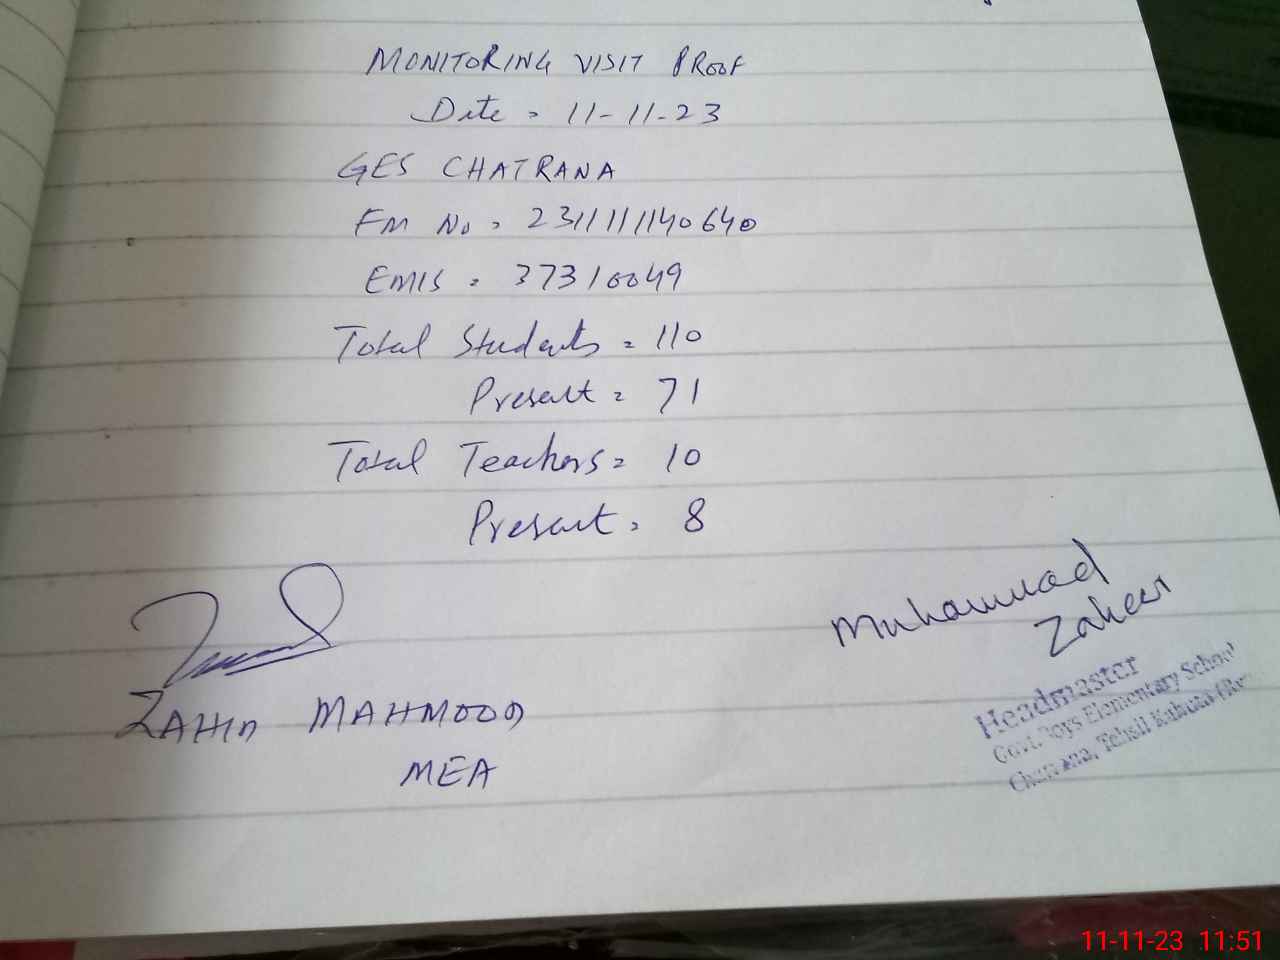 MONITORING VISIT PROOF
Date = 11-11-23
GES CHATRANA
FM No = 231111140640
EMIS = 37310049
Total Students = 110
Present = 71
Total Teachers = 10
Present = 8
Muhammad
Zaheer
ZAHID MAHMOOD
MEA
Headmaster
Govt. Boys Elementary School
Chatrana, Tehsil Kahuta
11-11-23 11:51